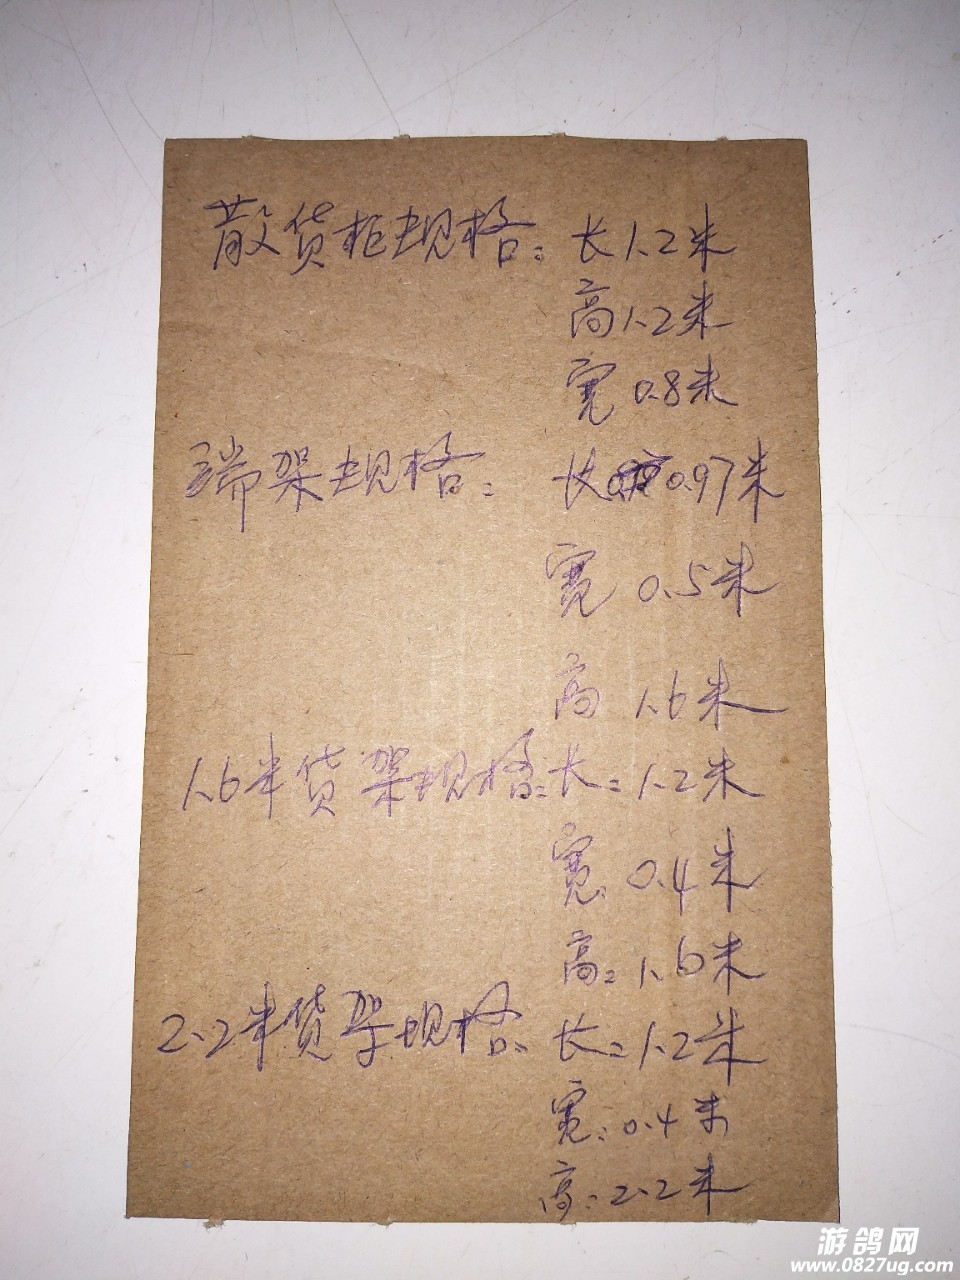 散货柜规格：长1.2米
高1.2米
宽0.8米
端架规格：长0.97米
宽0.5米
高1.6米
1.6米货架规格：长：1.2米
宽：0.4米
高：1.6米
2.2米货架规格：长：1.2米
宽：0.4米
高：2.2米
游鸽网
www.0827ug.com